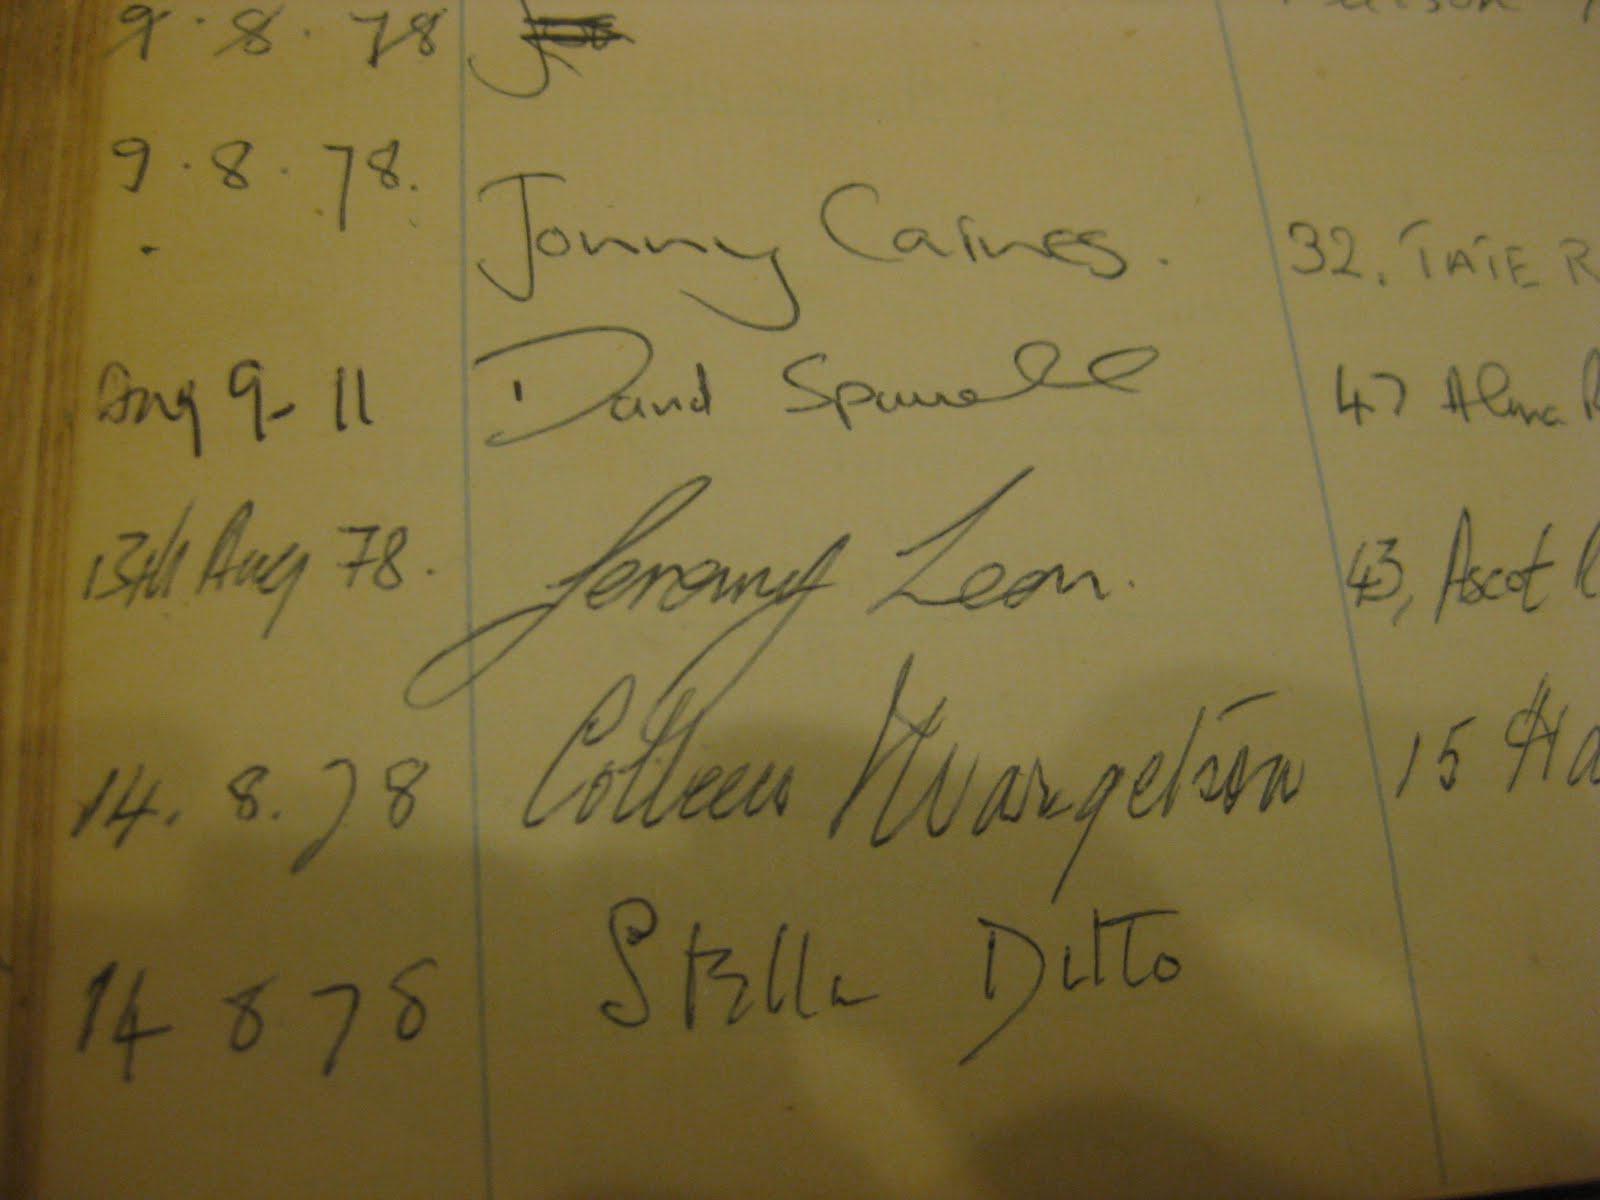 9.8.78
9.8.78. Jonny Caines. 32, TATE R
Aug 9-11 David Spurrell 47 Alma R
13th Aug 78. Jeremy Leon. 43, Ascot
14.8.78 Colleen 15 Ha
14 8 78 Stella Ditto